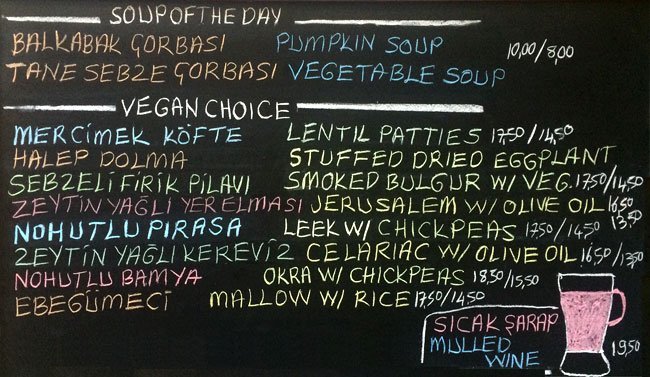 SOUP OF THE DAY
BALKABAK ÇORBASI PUMPKIN SOUP 10,00/8,00
TANE SEBZE ÇORBASI VEGETABLE SOUP
VEGAN CHOICE
MERCİMEK KÖFTE LENTIL PATTIES 17,50/14,50
HALEP DOLMA STUFFED DRIED EGGPLANT
SEBZELİ FİRİK PİLAVI SMOKED BULGUR W/ VEG. 17,50/14,50
ZEYTİN YAĞLI YER ELMASI JERUSALEM W/ OLIVE OIL 16,50
13,50
NOHUTLU PIRASA LEEK W/ CHICKPEAS 17,50/14,50
ZEYTİN YAĞLI KEREVİZ CELARIAC W/ OLIVE OIL 16,50/13,50
NOHUTLU BAMYA OKRA W/ CHICKPEAS 18,50/15,50
EBEGÜMECİ MALLOW W/ RICE 17,50/14,50
SICAK ŞARAP
MULLED
WINE 19,50